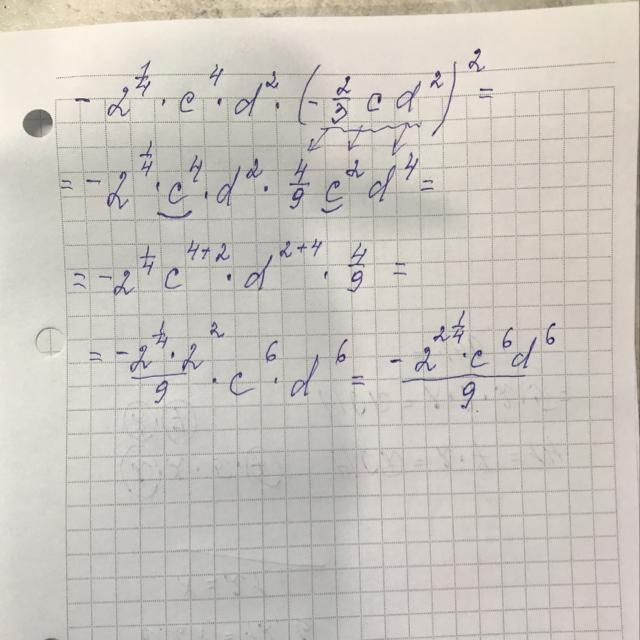 - 2^{1/4} · c^4 · d^2 · (- 2/3 c d^2)^2 =
= - 2^{1/4} · c^4 · d^2 · 4/9 c^2 d^4 =
= - 2^{1/4} c^{4+2} · d^{2+4} · 4/9 =
= - 2^{1/4} · 2^2 / 9 · c^6 · d^6 = - 2^{2 1/4} · c^6 d^6 / 9